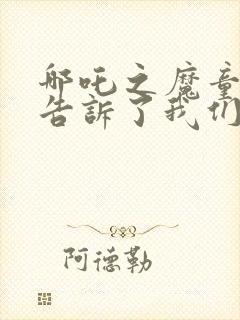 哪吒之魔童
告訴了我们
阿德勒